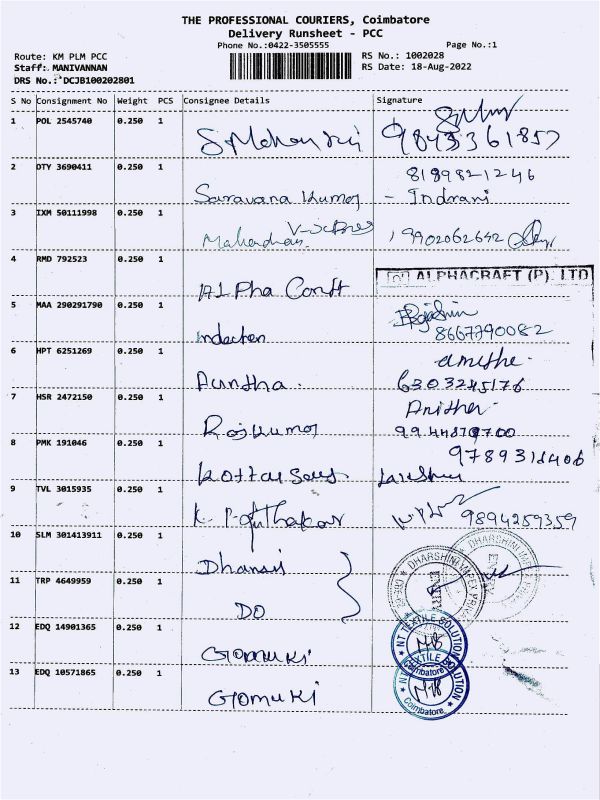 THE PROFESSIONAL COURIERS, Coimbatore
Delivery Runsheet - PCC
Phone No.:0422-3505555
Page No.:1
Route: KM PLM PCC
RS No.: 1002028
Staff: MANIVANNAN
RS Date: 18-Aug-2022
DRS No.: DCJB100202801
S No Consignment No Weight PCS Consignee Details Signature
1 POL 2545740 0.250 1 S. Mohan 9843361857
2 DTY 3690411 0.250 1 Saravana Kumar - Indrani 8189821246
3 IXM 50111998 0.250 1 9902062642
4 RMD 792523 0.250 1 Alpha ALPHACRAFT (P). LTD
5 MAA 290291790 0.250 1 8667790082
6 HPT 6251269 0.250 1 6303245176
7 HSR 2472150 0.250 1 Rajkumar
8 PMK 191046 0.250 1
9 TVL 3015935 0.250 1 K. 9894259359
10 SLM 301413911 0.250 1
DHARSHINI IMPEX
DHARSHINI IMPEX PRIVATE
11 TRP 4649959 0.250 1 DO
12 EDQ 14901365 0.250 1 Gomuki
NT TEXTILE SOLUTION
13 EDQ 10571865 0.250 1 Gomuki
NT TEXTILE SOLUTION
Coimbatore